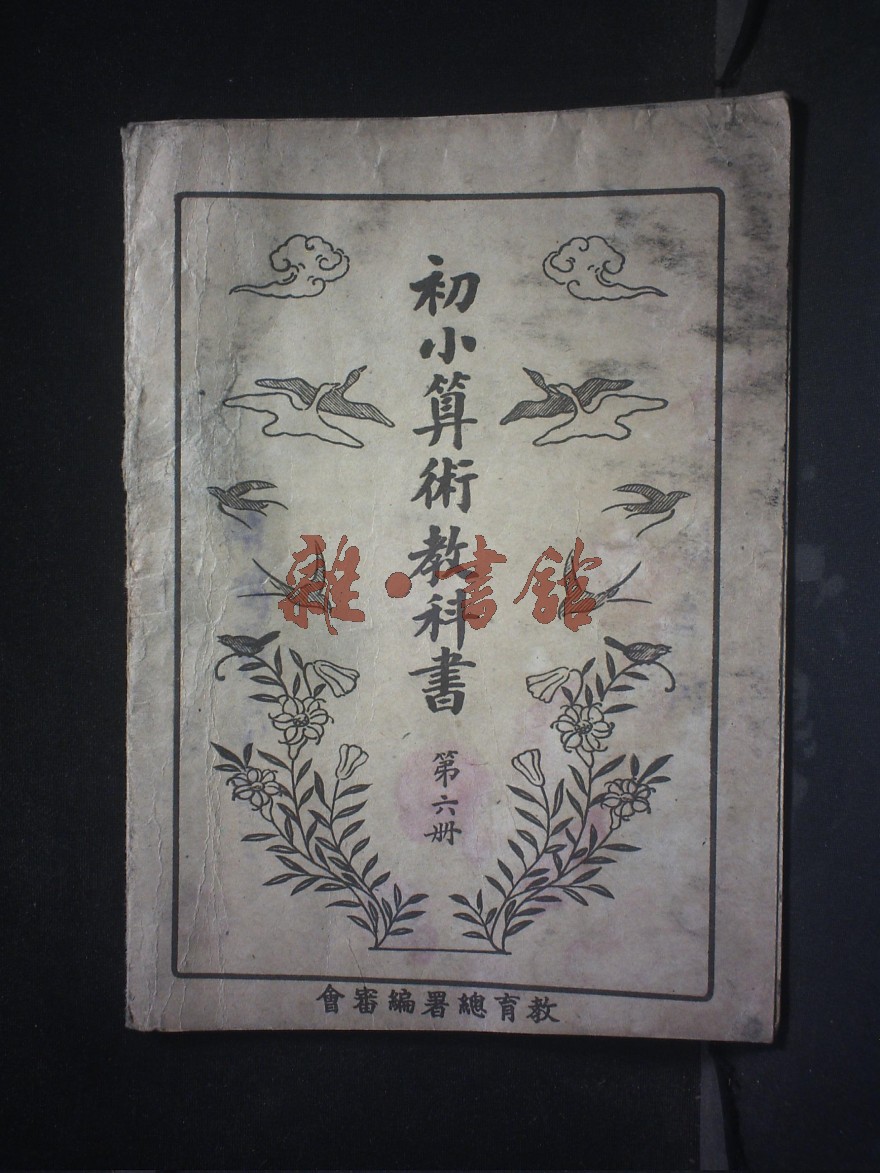 初小算術教科書
第六册
教育總署編審會
雜·書館